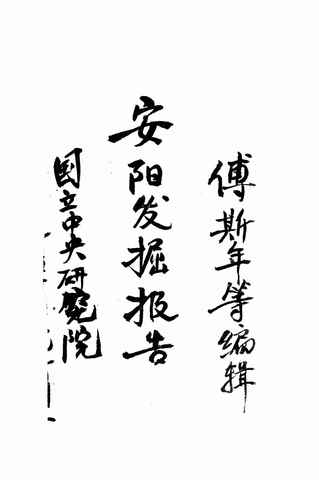 傅斯年等编辑
安阳发掘报告
国立中央研究院